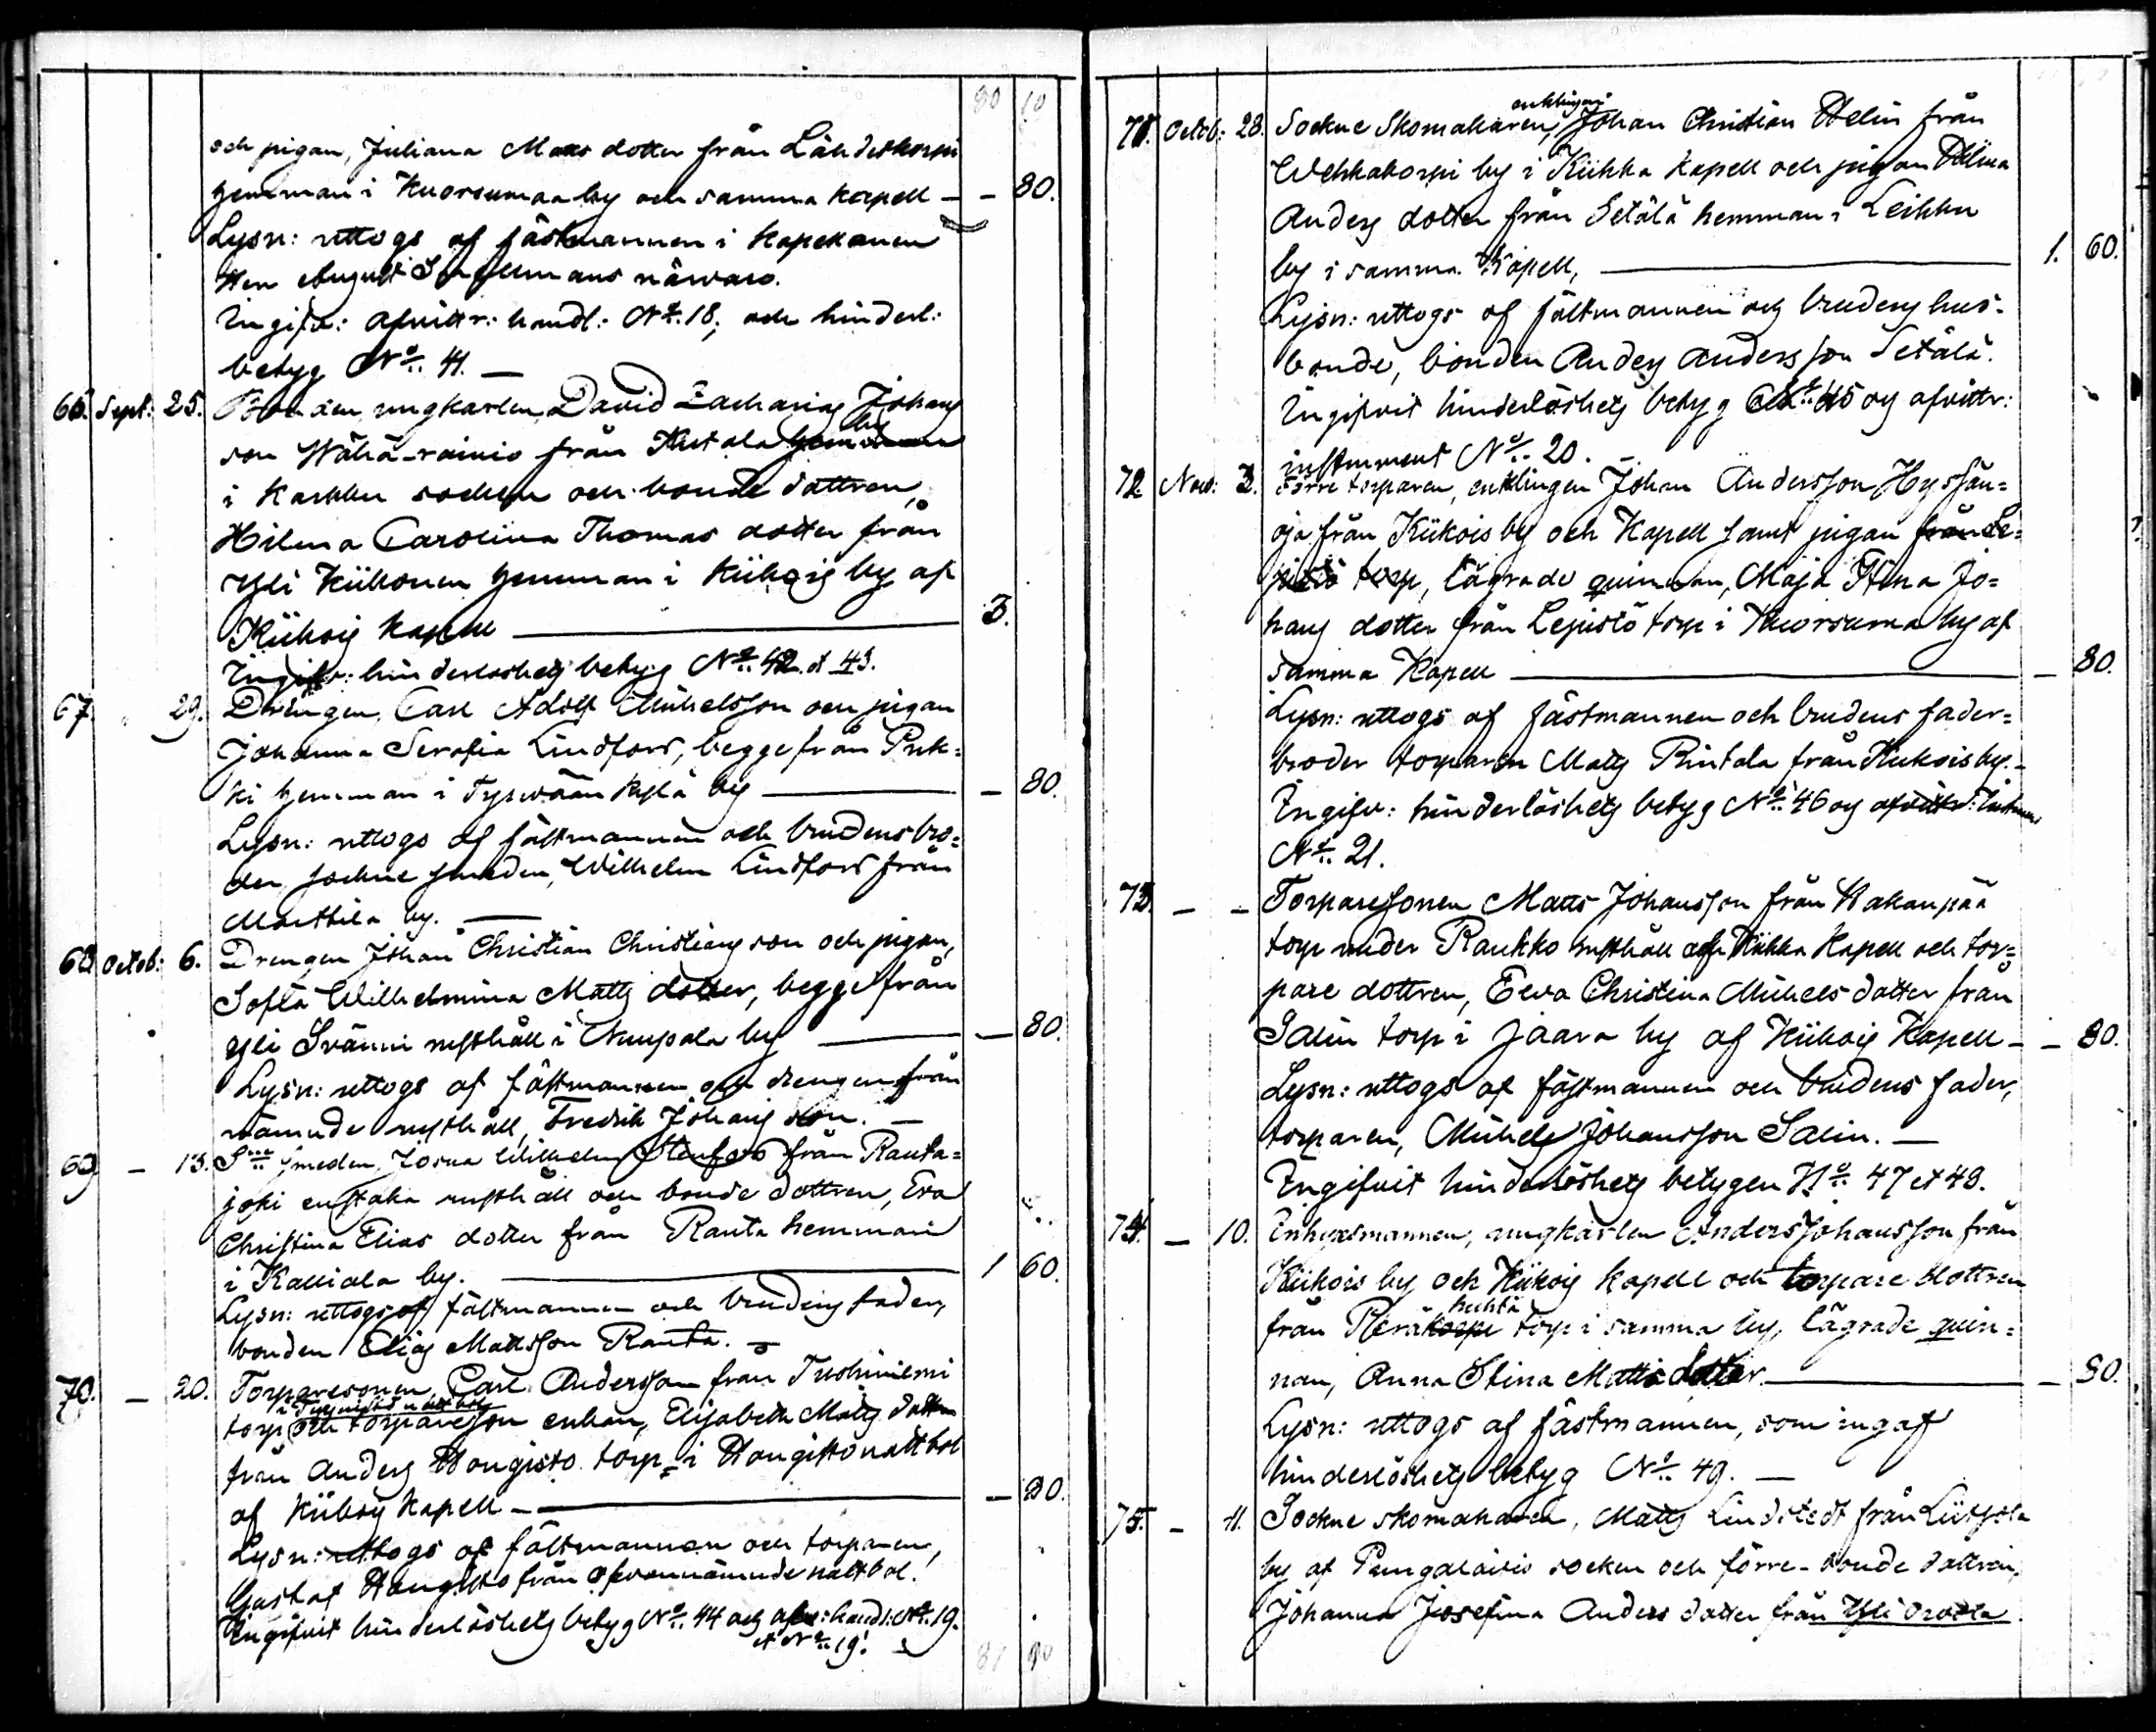 80 10
och pigan, Juliana Matts dotter från Lähdeskorpi
hemman i Kuorsumaa by och samma kapell — — 80.
Lysn: uttogs af fästmannen i Kapellanen
Herr August Snellmans närvaro.
Ingifv: afvittr: handl: No. 18, och hinderl:
betyg No. 41. —
66. Sept: 25. Bonden ungkarlen, David Zacharias Johans
son Wähä-rainio från Kutala hemman by
i Karkku socken och bonde dottren,
Hilma Carolina Thomas dotter från
Yli Kiikonen hemman i Kiikois by af
Kiikois kapell — 3.
Ingifv: hinderlöshets betyg No. 42 et 43.
67. " 29. Drängen, Carl Adolf Michelsson och pigan
Johanna Serafia Lindfors, begge från Puk=
ki hemman i Tyrwään kylä by — — 80.
Lysn: uttogs af fästmannen och brudens bro=
der sockne smeden, Wilhelm Lindfors från
Marttila by. —
68. Octob: 6. Drengen Johan Christian Christians son och pigan,
Sofia Wilhelmina Matts dotter, begge från
Yli Svänni rusthåll i Nuupala by — — 80.
Lysn: uttogs af fästmannen och drengen från
nämnde rusthåll, Fredrik Johans son. —
69. — 13. Sne smeden, Josua Wilhelm Stenfors från Rauta=
joki enstaka rusthåll och bonde dottren, Eva
Christina Elias dotter från Rauta hemman
i Kalliala by. — 1 60.
Lysn: uttogs af fästmannen och brudens fader,
bonden Elias Mattsson Rauta. —
70. — 20. Torparesonen Carl Andersson från Tuohiniemi
torp och torpareson enkan, Elisabeth Matts dotter
från Anders Hongisto torp i Hongisto nattbol
af Kiikois kapell — — 80.
Lysn: uttogs af fästmannen och torparen,
Gustaf Hongisto från ofvannämnde nattbol.
Ingifvit hinderlöshets betyg No. 44 och afv: handl: No. 19.
et No. 19.
81 90
71. Octob: 28. Sockne Skomakaren, enklingen Johan Christian Helin från
Wehkakorpi by i Kiikka Kapell och pigan Wilma
Anders dotter från Setälä hemman i Leikku
by i samma Kapell, — 1. 60.
Lysn: uttogs af fästmannen och brudens hus=
bonde, bonden Anders Andersson Setälä.
Ingifvit hinderlöshets betyg No. 45 og afvittr:
instrument No. 20. —
72. Nov: 3. Förre torparen, enklingen Johan Andersson Hyssän=
oja från Kiikois by och Kapell samt pigan från Le=
pistö torp, lägrade quinnan, Maja Stina Jo=
hans dotter från Lepistö torp i Kuorsuma by af
samma Kapell — — 80.
Lysn: uttogs af fästmannen och brudens fader=
broder torparen Matts Rintala från Kiikois by. —
Ingifv: hinderlöshets betyg No. 46 og afvittr:
No. 21.
73. — — Torparesonen Matts Johansson från Kakanpää
torp under Raukko rusthåll af Kiikka Kapell och tor=
pare dottren, Eva Christina Michels dotter från
Salin torp i Jaara by af Kiikois Kapell — — 80.
Lysn: uttogs af fästmannen och brudens fader,
torparen, Michel Johansson Salin. —
Ingifvit hinderlöshets betygen No. 47 et 48.
74. — 10. Inhysesmannen, ungkarlen Anders Johansson från
Kiikois by och Kiikois kapell och torpare dottren
huhta
från Peräkorpi torp i samma by, lägrade quin=
nan, Anna Stina Matts dotter — — 80.
Lysn: uttogs af fästmannen, som ingaf
hinderlöshets betyg No. 49. —
75. — 11. Sockne skomakaren, Matts Lindstedt från Liitsola
by af Pungalaitio socken och förre-bonde dottren,
Johanna Josefina Anders dotter från Yli Orotla